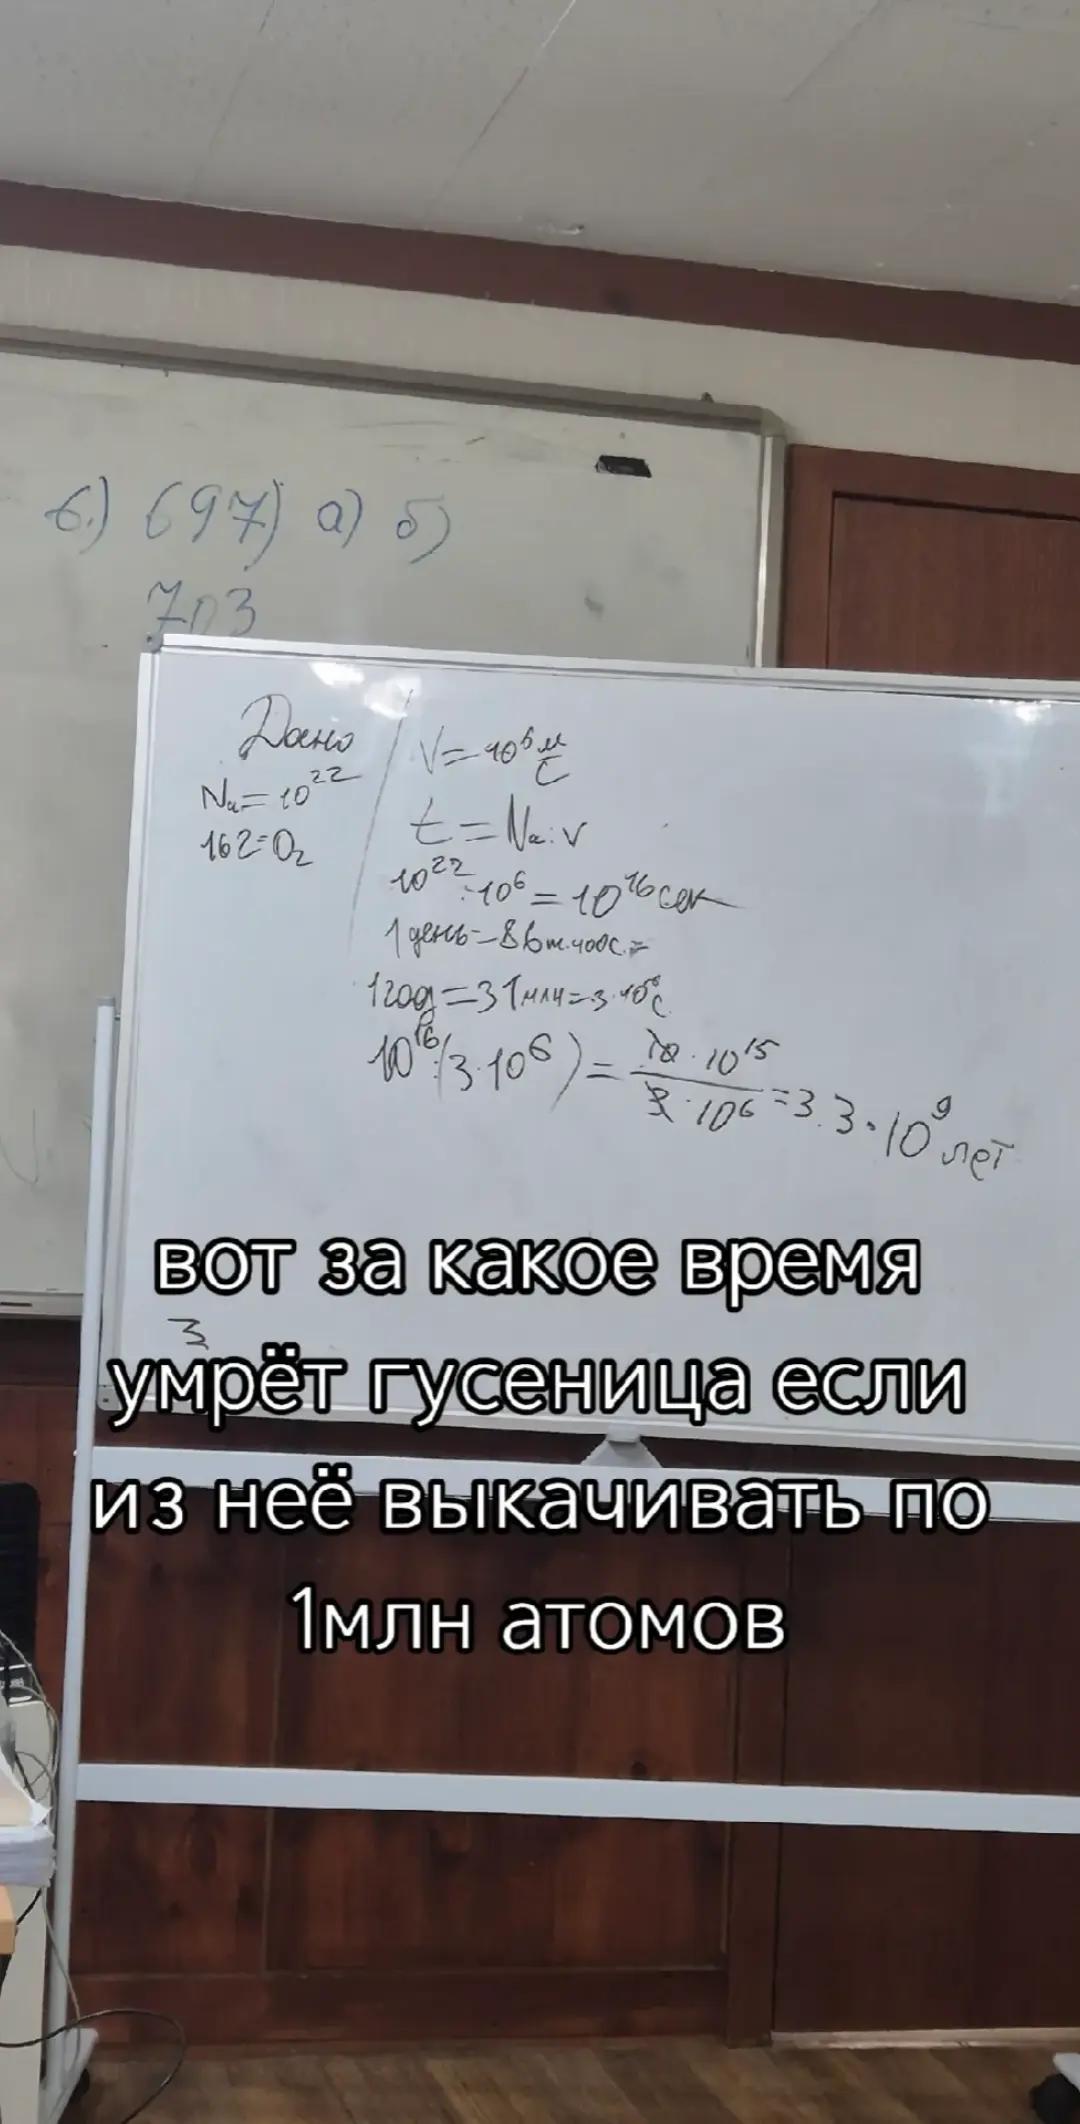 6.) 697) а) б)
703
Дано
Nа = 10²²
16г = O₂
V = 10⁶ м/с
t = Nа : v
10²² : 10⁶ = 10¹⁶ сек
1 день = 86т. час. =
1 год = 31 млн = 3·10⁶ с.
10¹⁶ : (3·10⁶) = 10·10¹⁵ / 3·10⁶ = 3.3·10⁹ лет
3
вот за какое время
умрёт гусеница если
из неё выкачивать по
1млн атомов